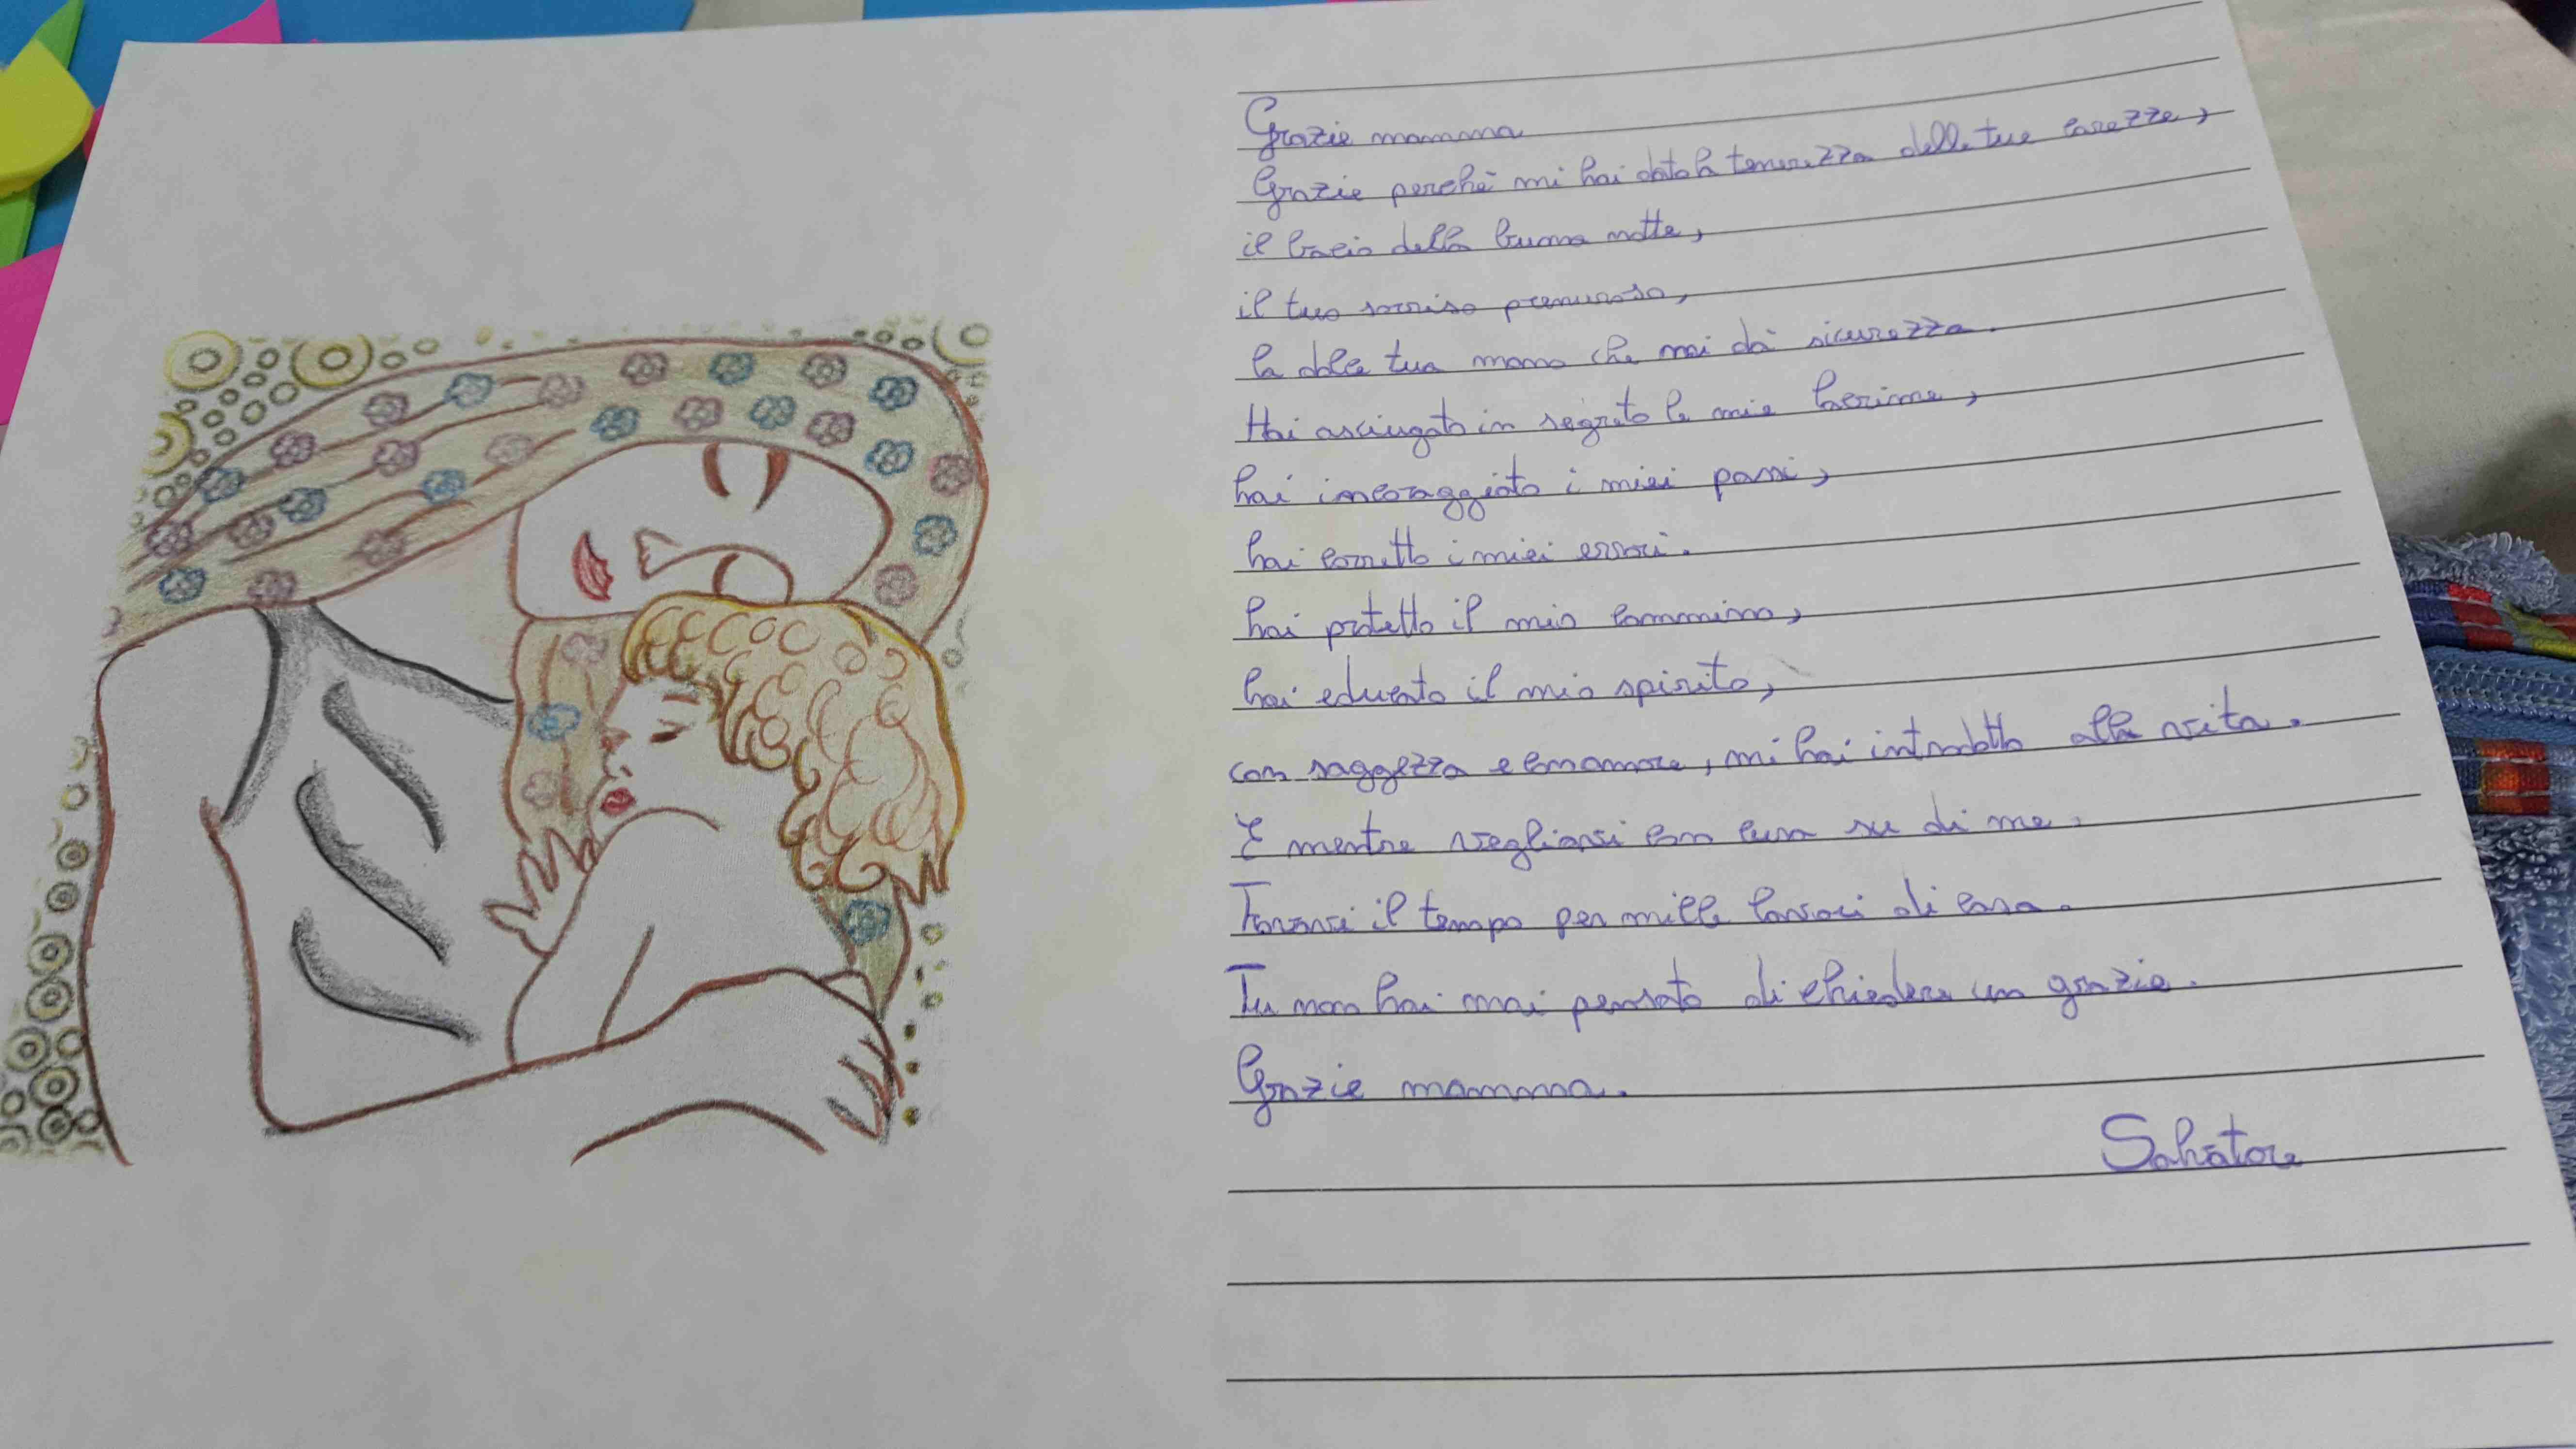 Grazie mamma
Grazie perchè mi hai dato la tenerezza delle tue carezze,
il bacio della buona notte,
il tuo sorriso premuroso,
la dolce tua mano che mi dà sicurezza.
Hai asciugato in segreto le mie lacrime,
hai incoraggiato i miei passi,
hai corretto i miei errori.
hai protetto il mio cammino,
hai educato il mio spirito,
con saggezza e con amore, mi hai introdotto alla vita.
E mentre vegliavi con cura su di me.
Trovavi il tempo per mille lavori di casa.
Tu non hai mai pensato di chiedere un grazie.
Grazie mamma.
Salvatore